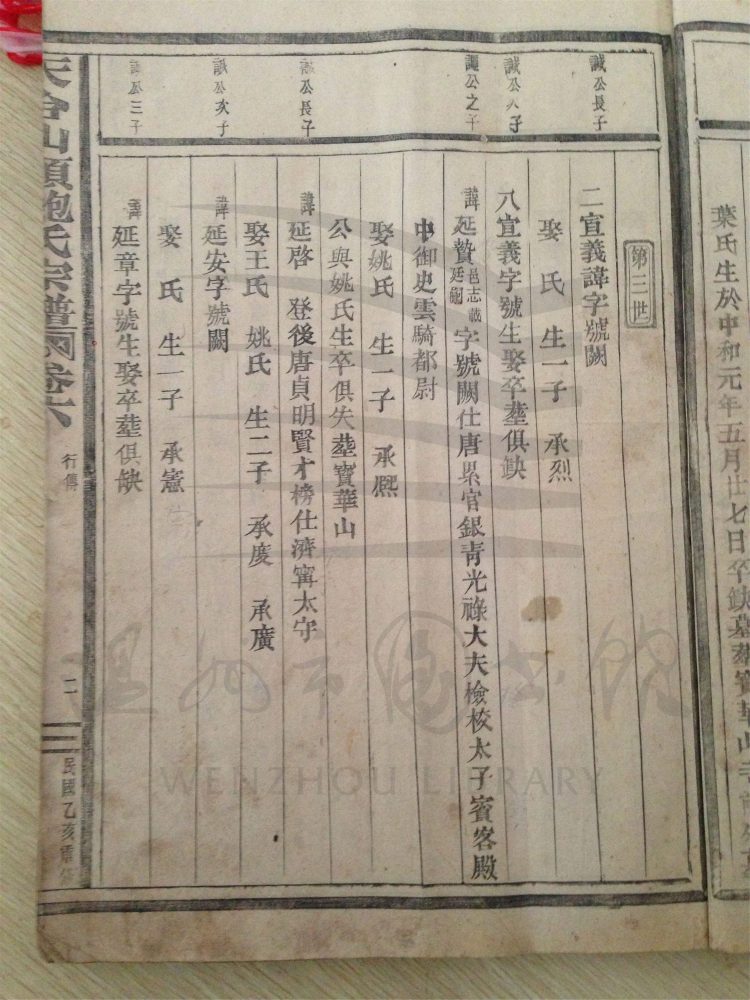 葉氏生於中和元年五月廿七日卒缺墓葬寶華山
誠公長子
誠公次子
公之子
公長子
誠公次子
公三子
第三世
二宣義諱字號闕
娶 氏 生一子 承烈
八宣義字號生娶卒塟俱缺
諱延贄邑志載廷嗣字號闕仕唐累官銀青光祿大夫檢校太子賓客殿
中御史雲騎都尉
娶姚氏 生一子 承熈
公與姚氏生卒俱失塟寶華山
諱延啓 登後唐貞明賢才榜仕濟甯太守
娶王氏 姚氏 生二子 承慶 承廣
諱延安字號闕
娶 氏 生一子 承憲
諱延章字號生娶卒塟俱缺
山頭鮑氏宗譜
卷六
行傳
二
民國乙亥重修
溫州市圖書館
WENZHOU LIBRARY